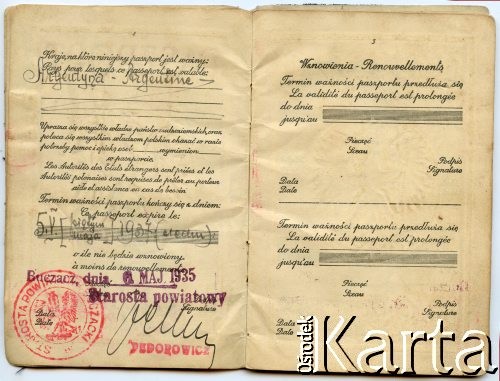 Kraje, na które niniejszy paszport jest ważny:
Pays pour lesquels ce passeport est valable:
Argentyna - Argentine
Uprasza się wszystkie władze państw cudzoziemskich, oraz
poleca się wszystkim władzom polskim okazać w razie
potrzeby pomoc i opiekę osob wymienion
w paszporcie.
Les Autorités des Etats étrangers sont priées et les
Autorités polonaises sont requises de prêter au porteur
aide et assistance en cas de besoin.
Termin ważności paszportu kończy się z dniem:
Ce passeport expire le:
5.V. maja 1937
o ile nie będzie wznowiony
à moins de renouvellement
Buczacz, dnia 6 MAJ 1935
Starosta powiatowy
Data
Date
Signature
FEDOROWICZ
STAROSTA POWIATOWY BUCZACKI
3
Wznowienia - Renouvellements
Termin ważności paszportu przedłuża się
La validité du passeport est prolongée
do dnia
jusqu'au
Pieczęć
Sceau
Podpis
Signature
Data
Date
Termin ważności paszportu przedłuża się
La validité du passeport est prolongée
do dnia
jusqu'au
Pieczęć
Sceau
Podpis
Signature
Data
Date
Ośrodek
Karta